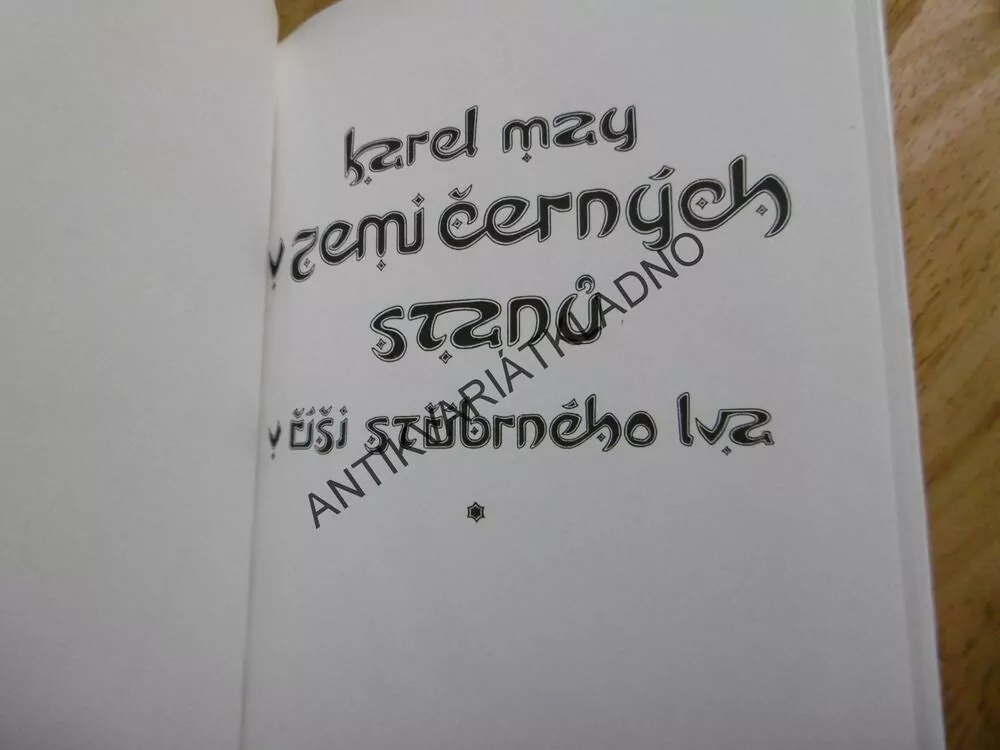 karel may
v zemi černých
stanů
v říši stříbrného lva
ANTIKVARIÁTKLADNO